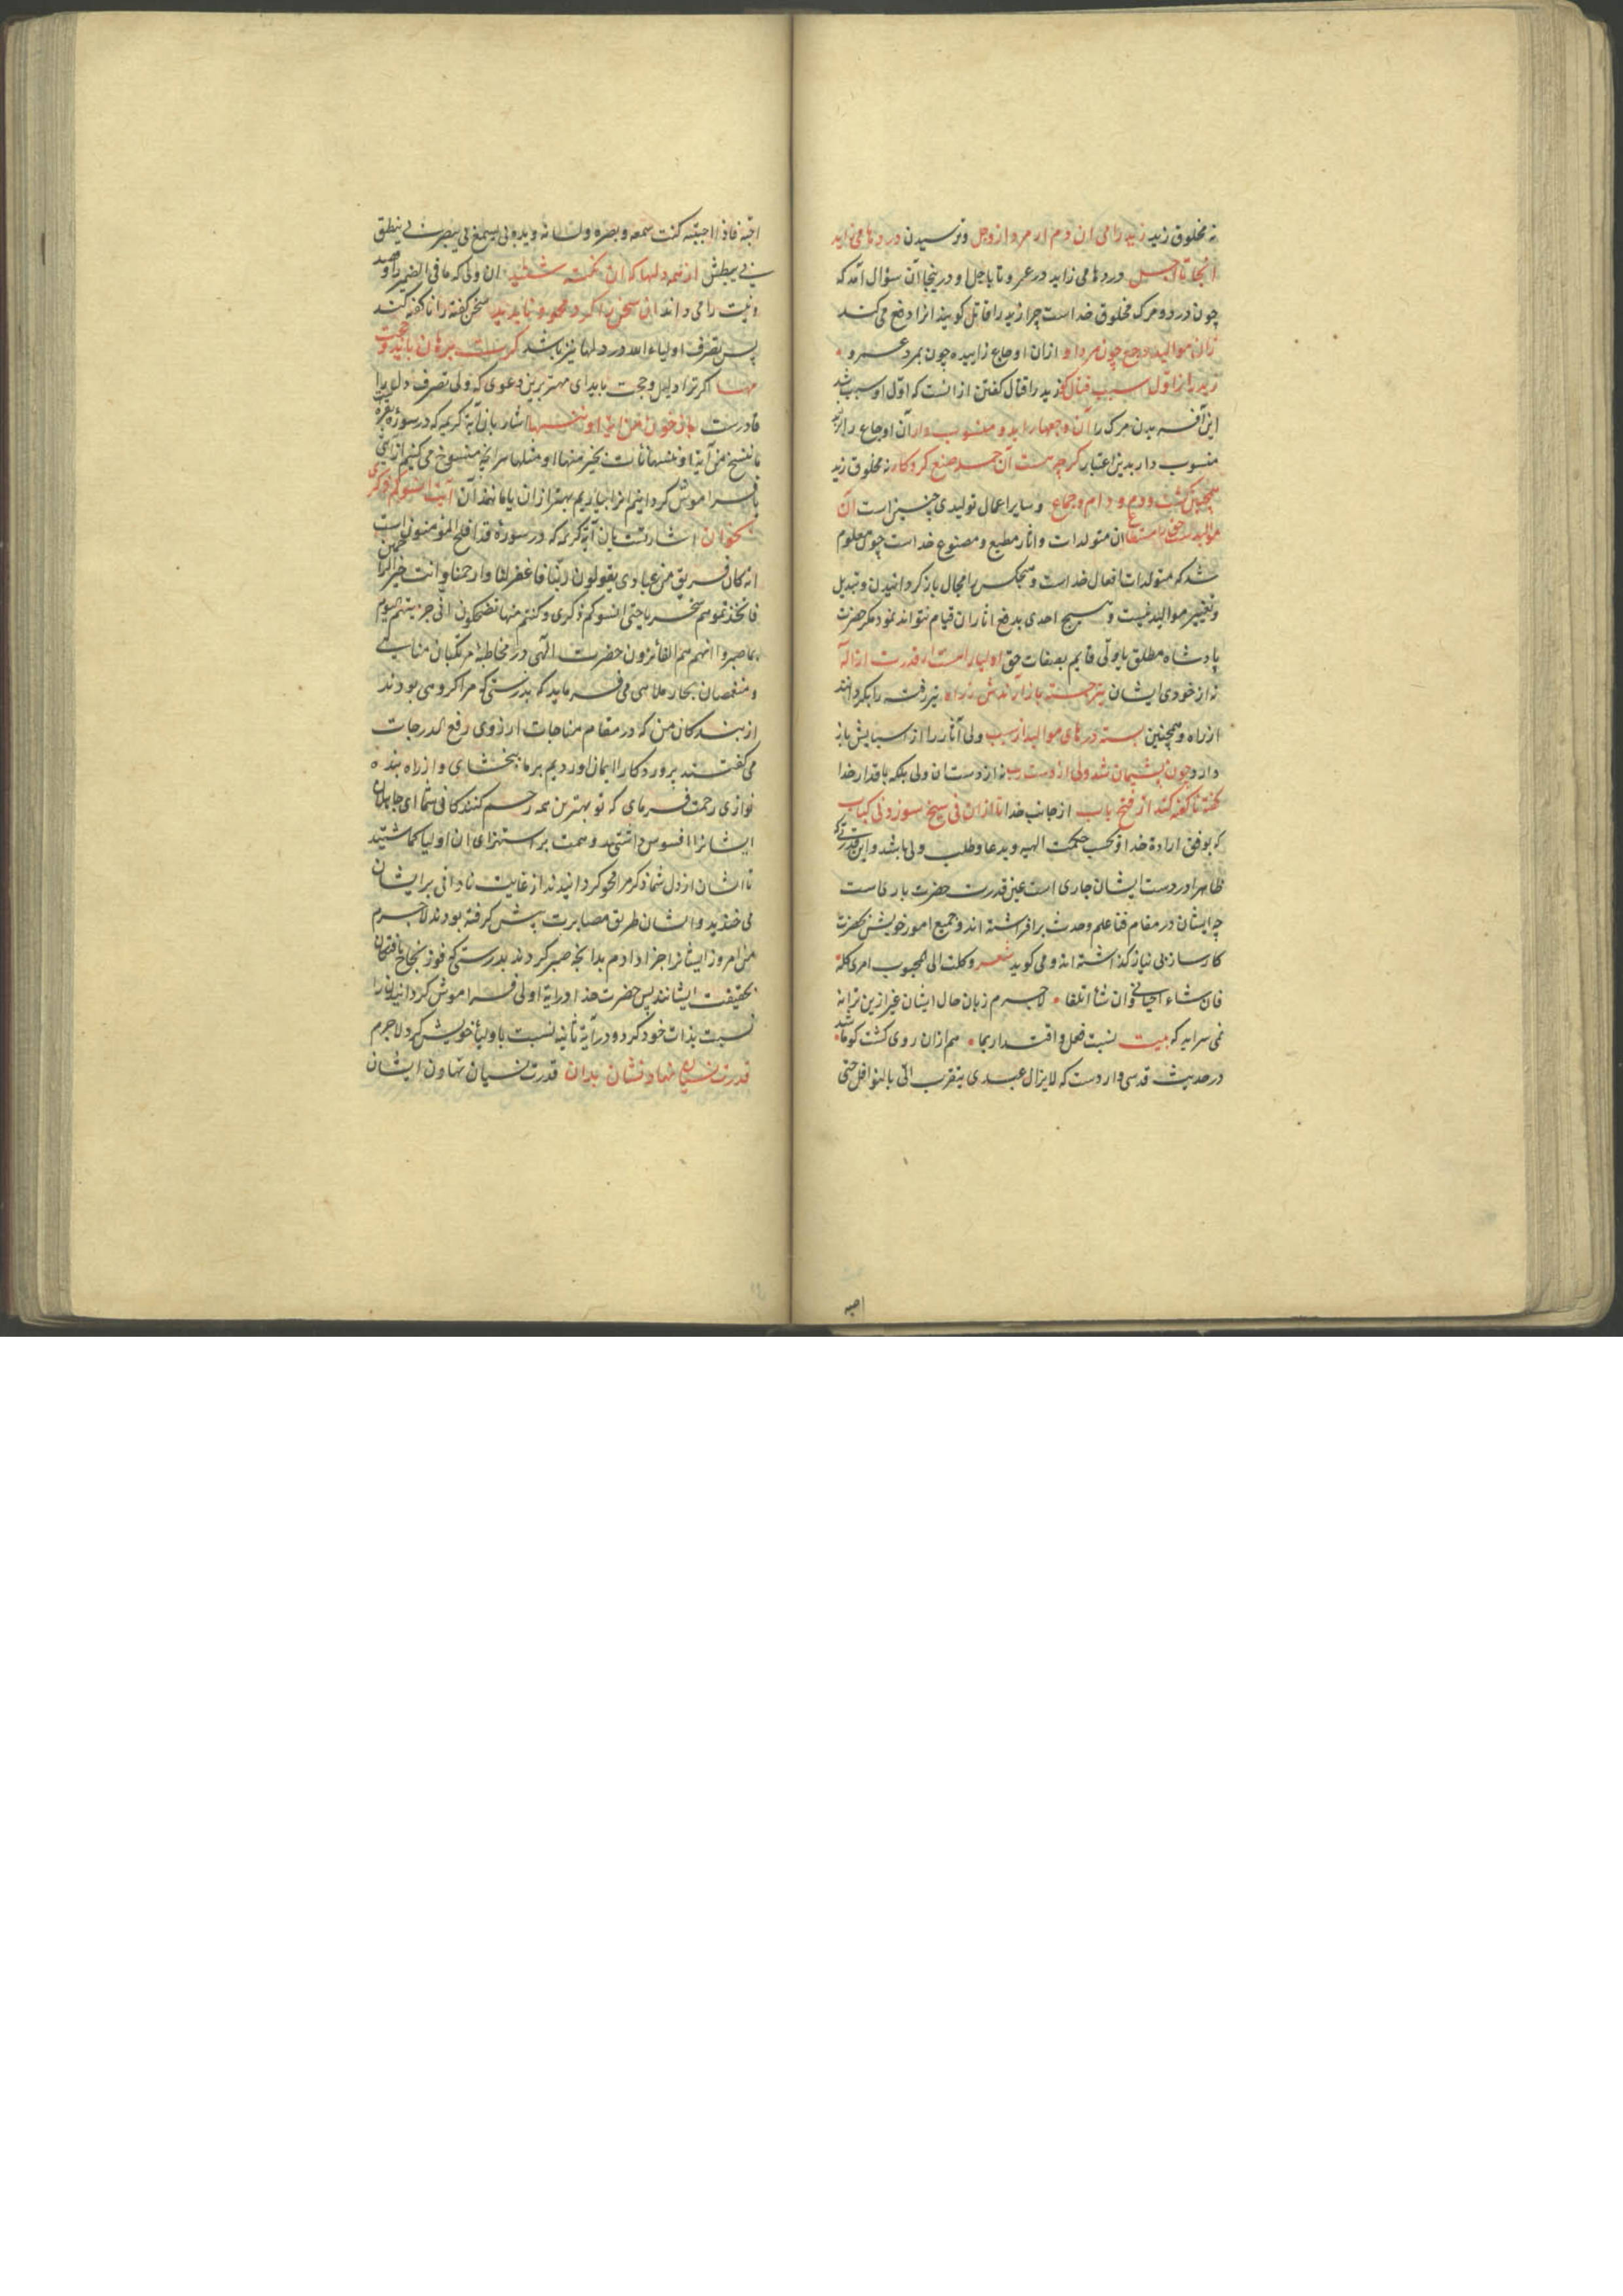 نه مخلوق زید زید رامی آن دم ار مرد از وجل و ترسیدن دردها می زاید
آنجا تا اجل دردها می زاید در عمرو تا یاجل و در ینجا آن سؤال آمد که
چون درد و مرک مخلوق خداست چرا زید را قاتل کویند انرا دفع می کند
زان موالید وجع چون مرد او ازان اوجاع زاییده چون بمرد عمرو
زید را ز اول سبب قتال کو زید را قتال کفتن از انست که اول او سبب شد
این آفریدن مرک را آن وجعها را بدو منسوب دار آن اوجاع را بزید
منسوب دار بدین اعتبار کرچه هست آن جمله صنع کردکار نه مخلوق زید
همچنین کشت و دم و دام و جماع و سایر اعمال تولیدی چنین است آن
موالیدست حق را مستطاع ان متولدات و اثار مطیع و مصنوع خداست چون معلوم
شد که متولدات افعال خداست و هیچکس را مجال باز کردانیدن و تبدیل
و تغییر موالید نیست و هیچ احدی بدفع اثار ان قیام نتواند نمود مکر حضرت
پادشاه مطلق یا ولی قایم بصفات حق اولیا را هست از قدرت ازاله
نه از خودی ایشان تیر جسته باز آرندش ز راه تیر رفته را بکردانند
از راه و همچنین بسته درهای موالید از سبب ولی آثار را از اسبابش باز
دارد چون پشیمان شد ولی از دست رب نه از دست ان ولی بلکه باقدار خدا
کفته ناکفته کند از فتح باب از جانب خدا تا ازان نی سیخ سوزد نی کباب
که بوفق ارادۀ خدا و بحسب حکمت الهیه و بدعا و طلب ولی باشد و این قدرتی که
ظاهرا در دست ایشان جاری است عین قدرت حضرت باری است
چه ایشان در مقام فنا علم وحدت برافراشته اند و جمیع امور خویش بحضرت
کارساز بی نیاز کذاشته اند و می کوید شعر وکلت الی المحبوب امری کله
فان شاء احیانی وان شا اتلفا لاجرم زبان حال ایشان غیر ازین ترانه
نمی سراید که بیت نسبت فعل و اقتدار بما هم ازان روی کشت کو ما شد
در حدیث قدسی واردست که لایزال عبدی یتقرب الی بالنوافل حتی
احبه
احبه فاذا احببته کنت سمعه و بصره ولسانه ویده بی یسمع بی یبصر بی ینطق
بی یبطش از همه دلها که آن نکته شنید ان ولی که ما فی الضمیر او قصد
و نیت را می داند آن سخن را کرد محو و ناپدید سخن کفته را ناکفته کند
پس تصرف اولیاء الله در دلها نیز باشد کرت برهان باید و حجت
مها اکر ترا دلیل و حجت باید ای مهتر برین دعوی که ولی تصرف دلها را
قادرست باز خوان من آیة او ننسها اشارت بان آیة کریمه که در سورۀ بقره است
ما ننسخ من آیة او ننسها نأت بخیر منها او مثلها هر انچه منسوخ می کنیم از آیتی
یا فراموش کردانیم انرا بیاریم بهتر ازان یا مانند آن آیت انسوکم ذکری
بخوان اشارتست بان آیۀ کریمه که در سورۀ قد افلح المؤمنون است
انه کان فریق من عبادی یقولون ربنا فاغفر لنا وارحمنا وانت خیر الراحمین
فاتخذتموهم سخریا حتی انسوکم ذکری وکنتم منها تضحکون انی جزیتهم الیوم
بما صبروا انهم هم الفائزون حضرت الهی در مخاطبۀ مرتکبان مناهی
و منغمسان بحار ملاهی می فرماید که بدرستی که مرا کروهی بودند
از بندکان من که در مقام مناجات ارزوی رفع الدرجات
می کفتند پروردکارا ایمان اوردیم بر ما ببخشای و از راه بنده
نوازی رحمت فرمای که تو بهترین همه رحم کنندکانی شما ای جاهلان
ایشانرا افسوس داشتید و همت بر استهزای ان اولیا کماشتید
تا ایشان از دل شما ذکر مرا محو کردانیدند از غایت نادانی بر ایشان
می خندید و ایشان طریق مصابرت پیش کرفته بودند لاجرم
من امروز ایشانرا جزا دادم بدانچه صبر کردند بدرستی که فوز نجاح یافتکان
بحقیقت ایشانند پس حضرت خدا در آیة اولی فراموش کردانیدن را
نسبت بذات خود کرد و در آیة ثانیه نسبت باولیأ خویش کرد لاجرم
قدرت نسیان نهادنشان بدان قدرت نسیان نهادن ایشان